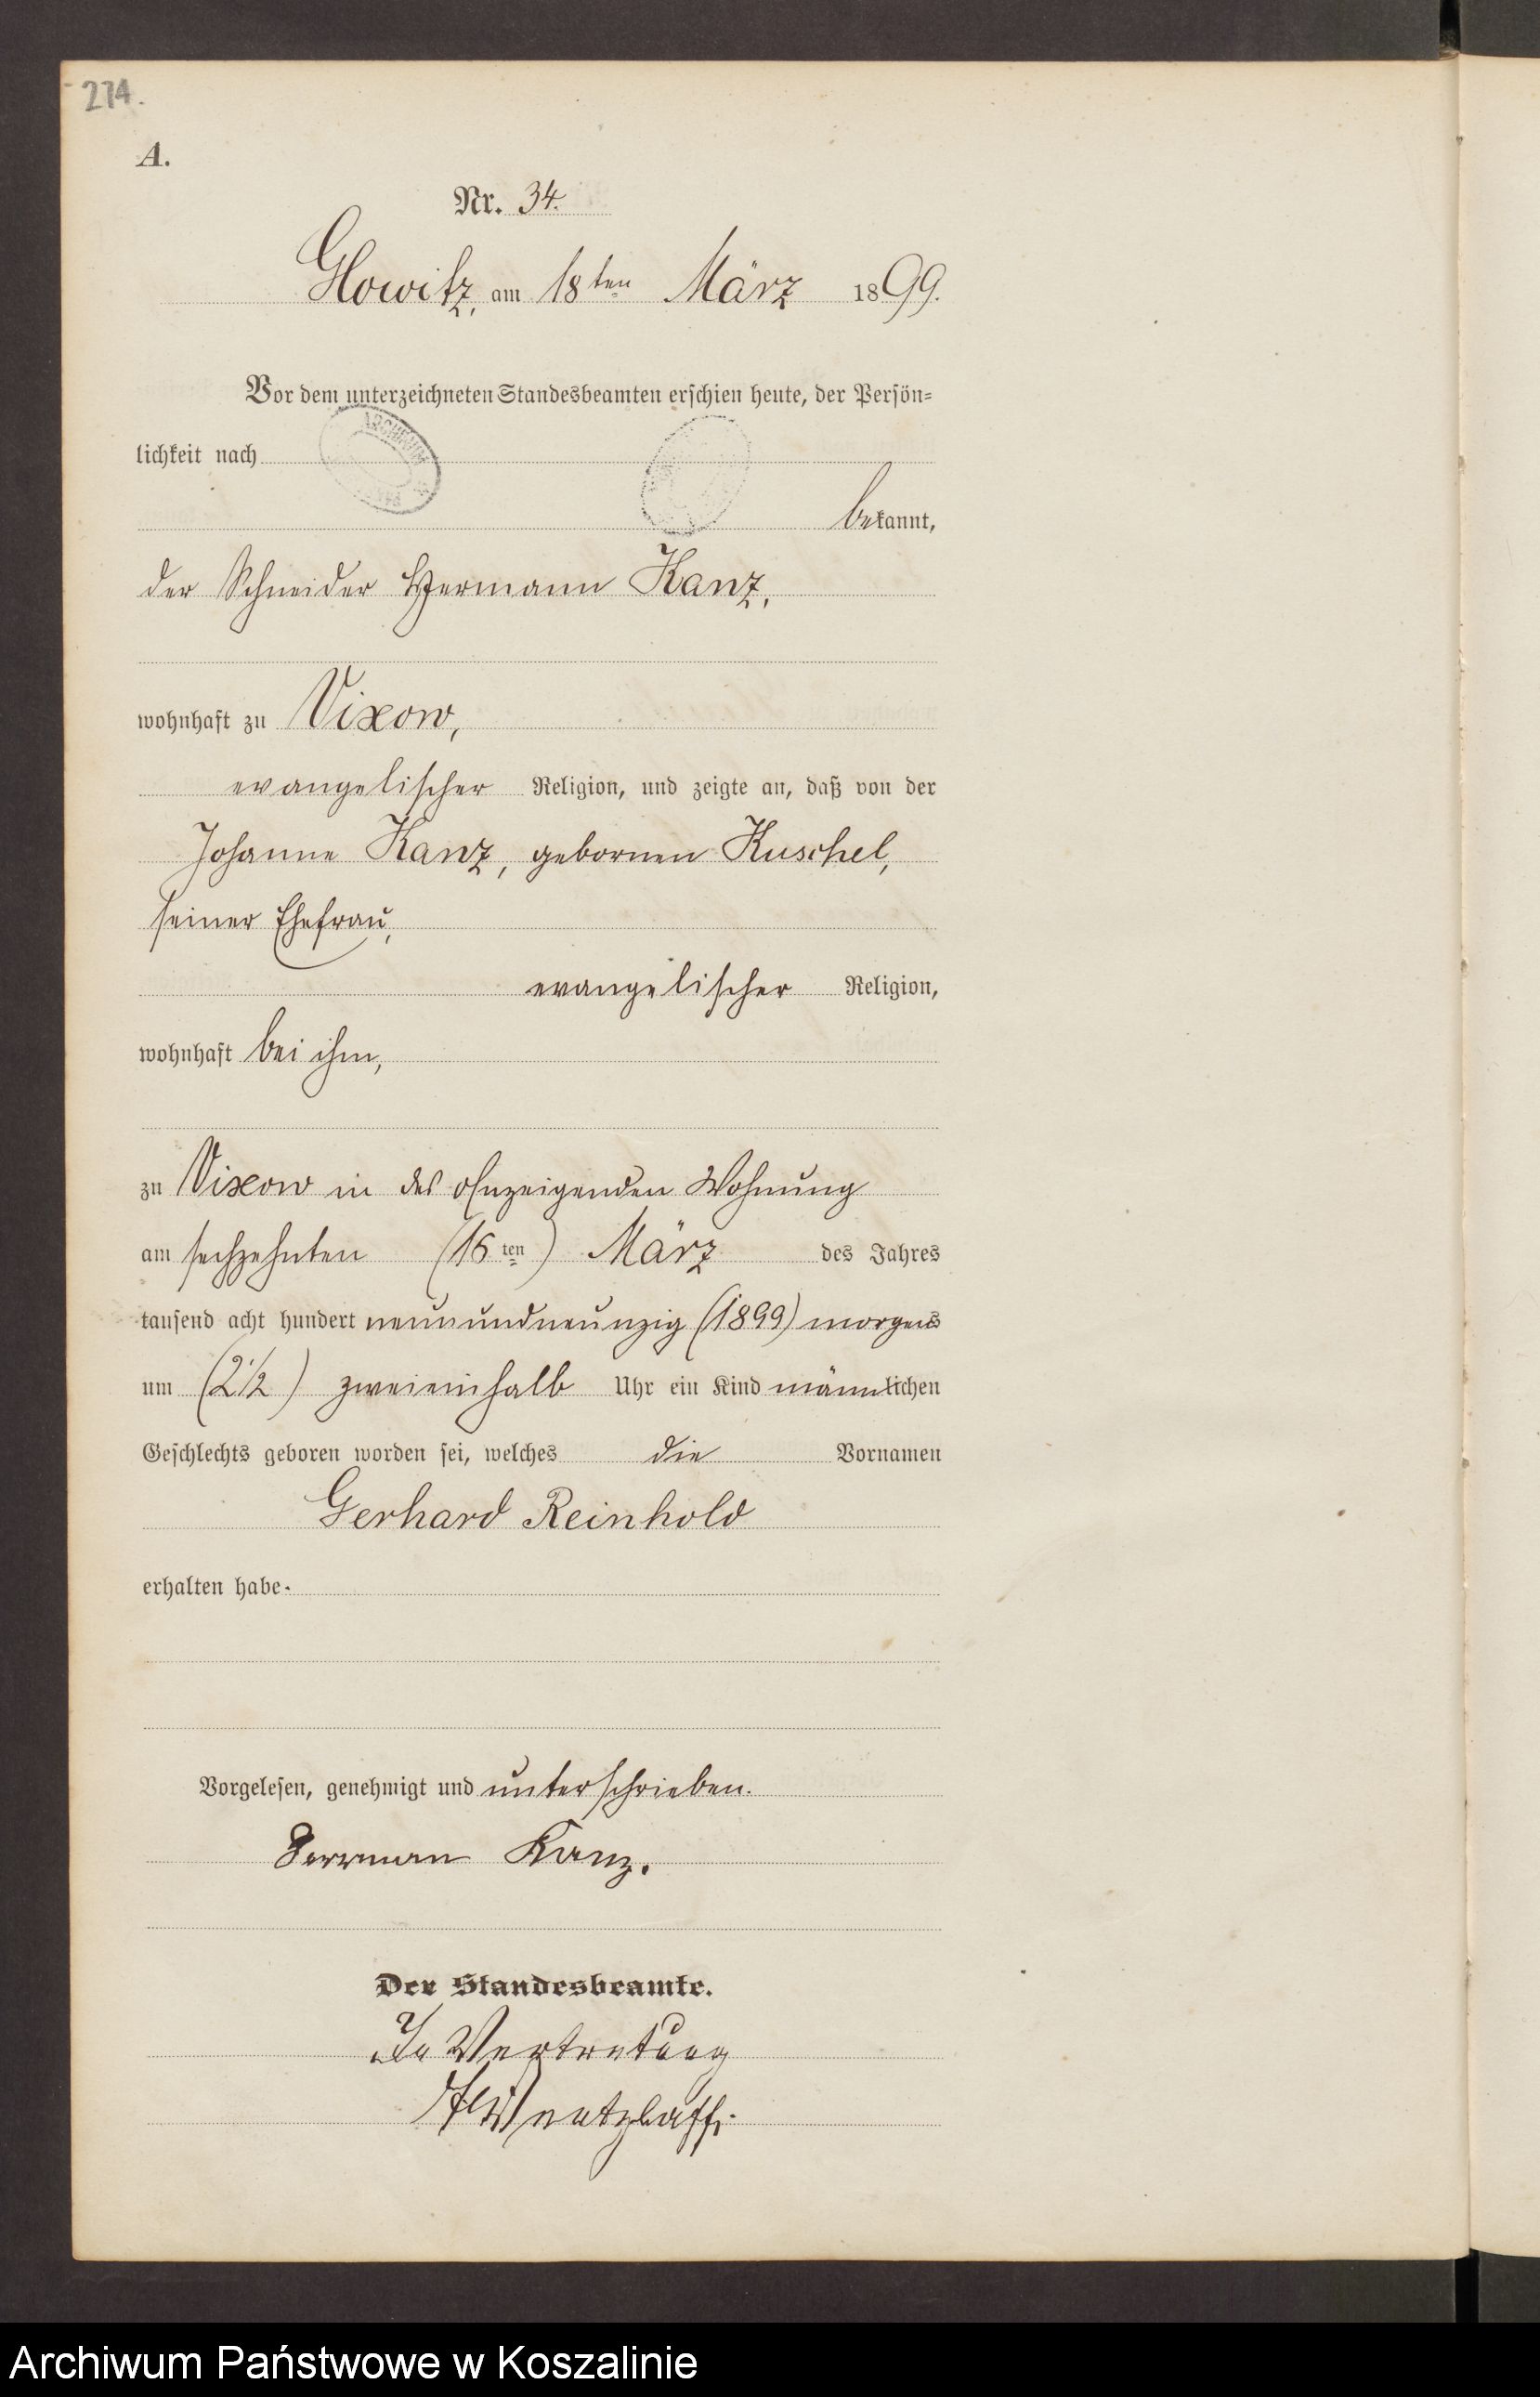 274.
A.
Nr. 34.
Glowitz, am 18ten März 1899.
Vor dem unterzeichneten Standesbeamten erschien heute, der Persön=
lichkeit nach
ARCHIWUM
bekannt,
der Schneider Hermann Kanz,
wohnhaft zu Vixow,
evangelischer Religion, und zeigte an, daß von der
Johanne Kanz, gebornen Kuschel,
seiner Ehefrau,
evangelischer Religion,
wohnhaft bei ihm,
zu Vixow in des Anzeigenden Wohnung
am sechzehnten (16ten) März des Jahres
tausend acht hundert neunundneunzig (1899) morgens
um (2 1/2) zweieinhalb Uhr ein Kind männlichen
Geschlechts geboren worden sei, welches die Vornamen
Gerhard Reinhold
erhalten habe.
Vorgelesen, genehmigt und unterschrieben.
Herrman Kanz.
Der Standesbeamte.
In Vertretung
Wentzlaff.
Archiwum Państwowe w Koszalinie